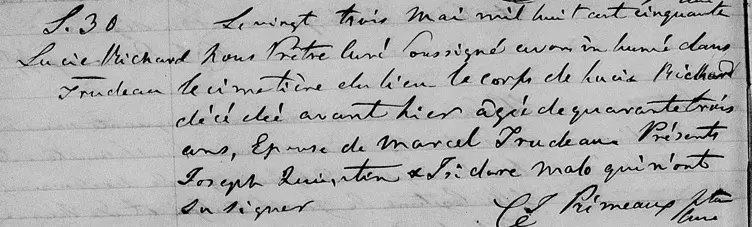 S. 30
Lucie Richard
Trudeau
Le vingt trois Mai mil huit cent cinquante
Nous Prêtre Curé Soussigné avons inhumé dans
le cimetière du lieu le corps de Lucie Richard
décédée avant hier âgée de quarante trois
ans, Epouse de Marcel Trudeau Présents
Joseph Quintin & Isidore Malo qui n'ont
su signer
Primeaux Ptre
Curé